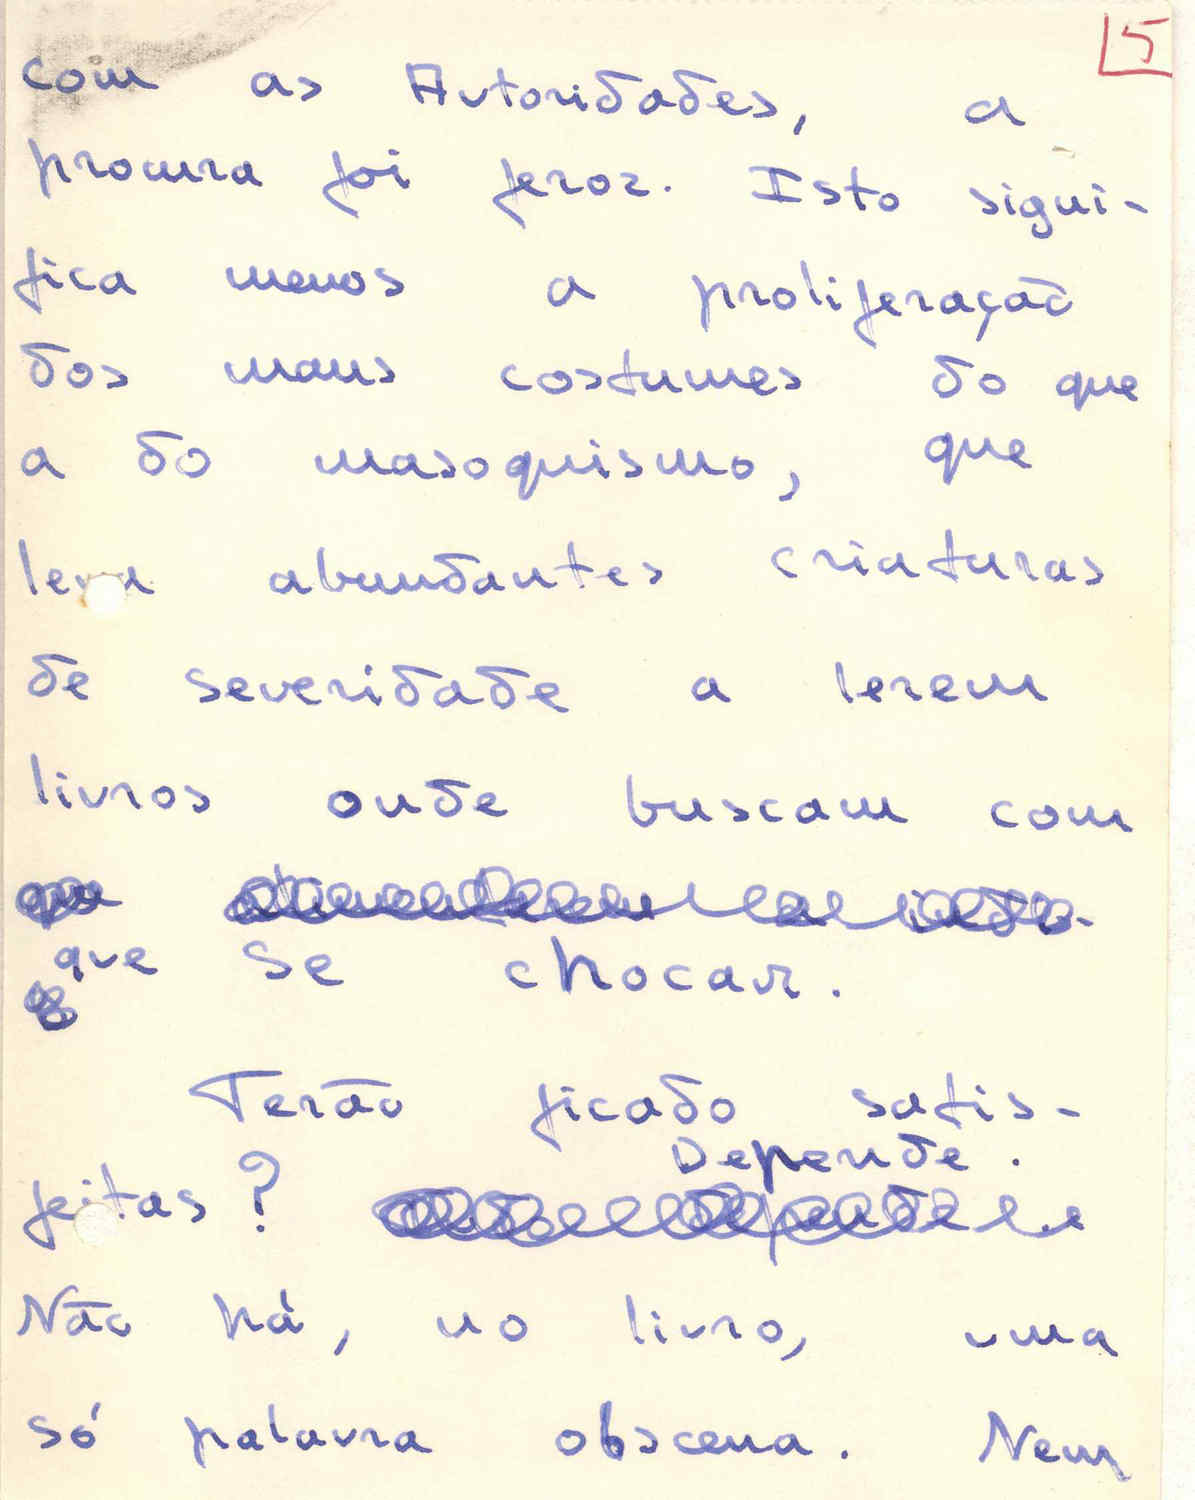 5
com as Autoridades, a
procura foi feroz. Isto signi-
fica menos a proliferação
dos maus costumes do que
a do masoquismo, que
leva abundantes criaturas
de severidade a lerem
livros onde buscam com
que se chocar.
Terão ficado satis-
Depende.
feitas?
Não há, no livro, uma
só palavra obscena. Nem